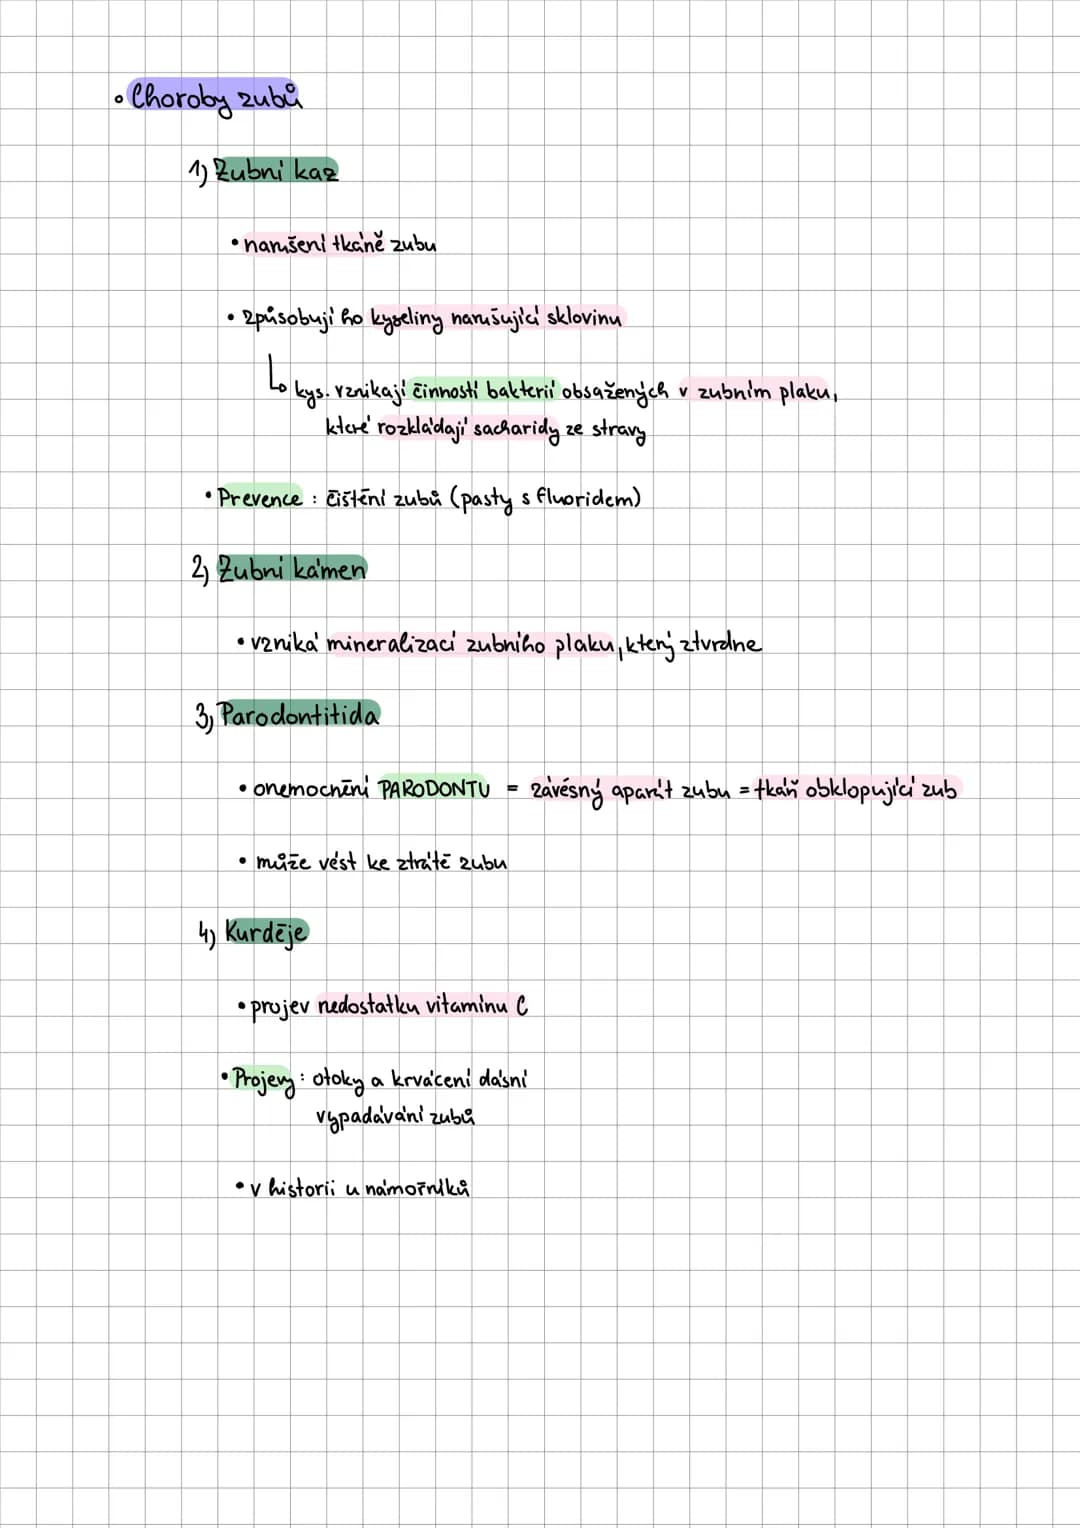 • Choroby zubů
1) Zubní kaz
• narušení tkáně zubu
• způsobují ho kyseliny narušující sklovinu
↳ kys. vznikají činností bakterií obsažených v zubním plaku,
které rozkládají sacharidy ze stravy
• Prevence : čištění zubů (pasty s fluoridem)
2) Zubní kámen
• vzniká mineralizací zubního plaku, který ztvrdne
3) Parodontitida
• onemocnění PARODONTU = závěsný aparát zubu = tkáň obklopující zub
• může vést ke ztrátě zubu
4) Kurděje
• projev nedostatku vitamínu C
• Projevy : otoky a krvácení dásní
vypadávání zubů
• v historii u námořníků